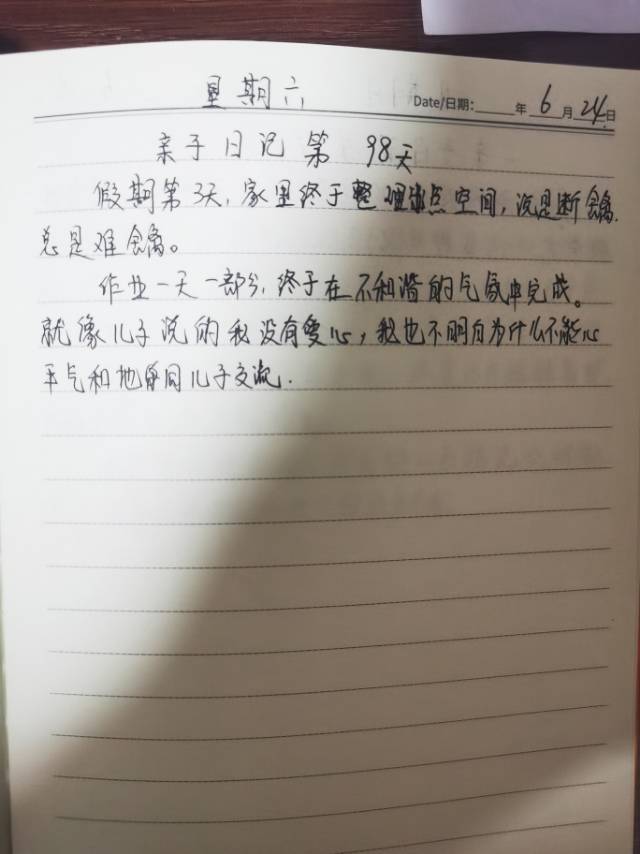 星期六
Date/日期: 年 6 月 24 日
亲子日记第 98天
假期第3天,家里终于整理出点空间,说是断舍离,
总是难舍离。
作业一天一部分,终于在不和谐的气氛中完成。
就像儿子说的我没有爱心,我也不明白为什么不能心
平气和地的同儿子交流.